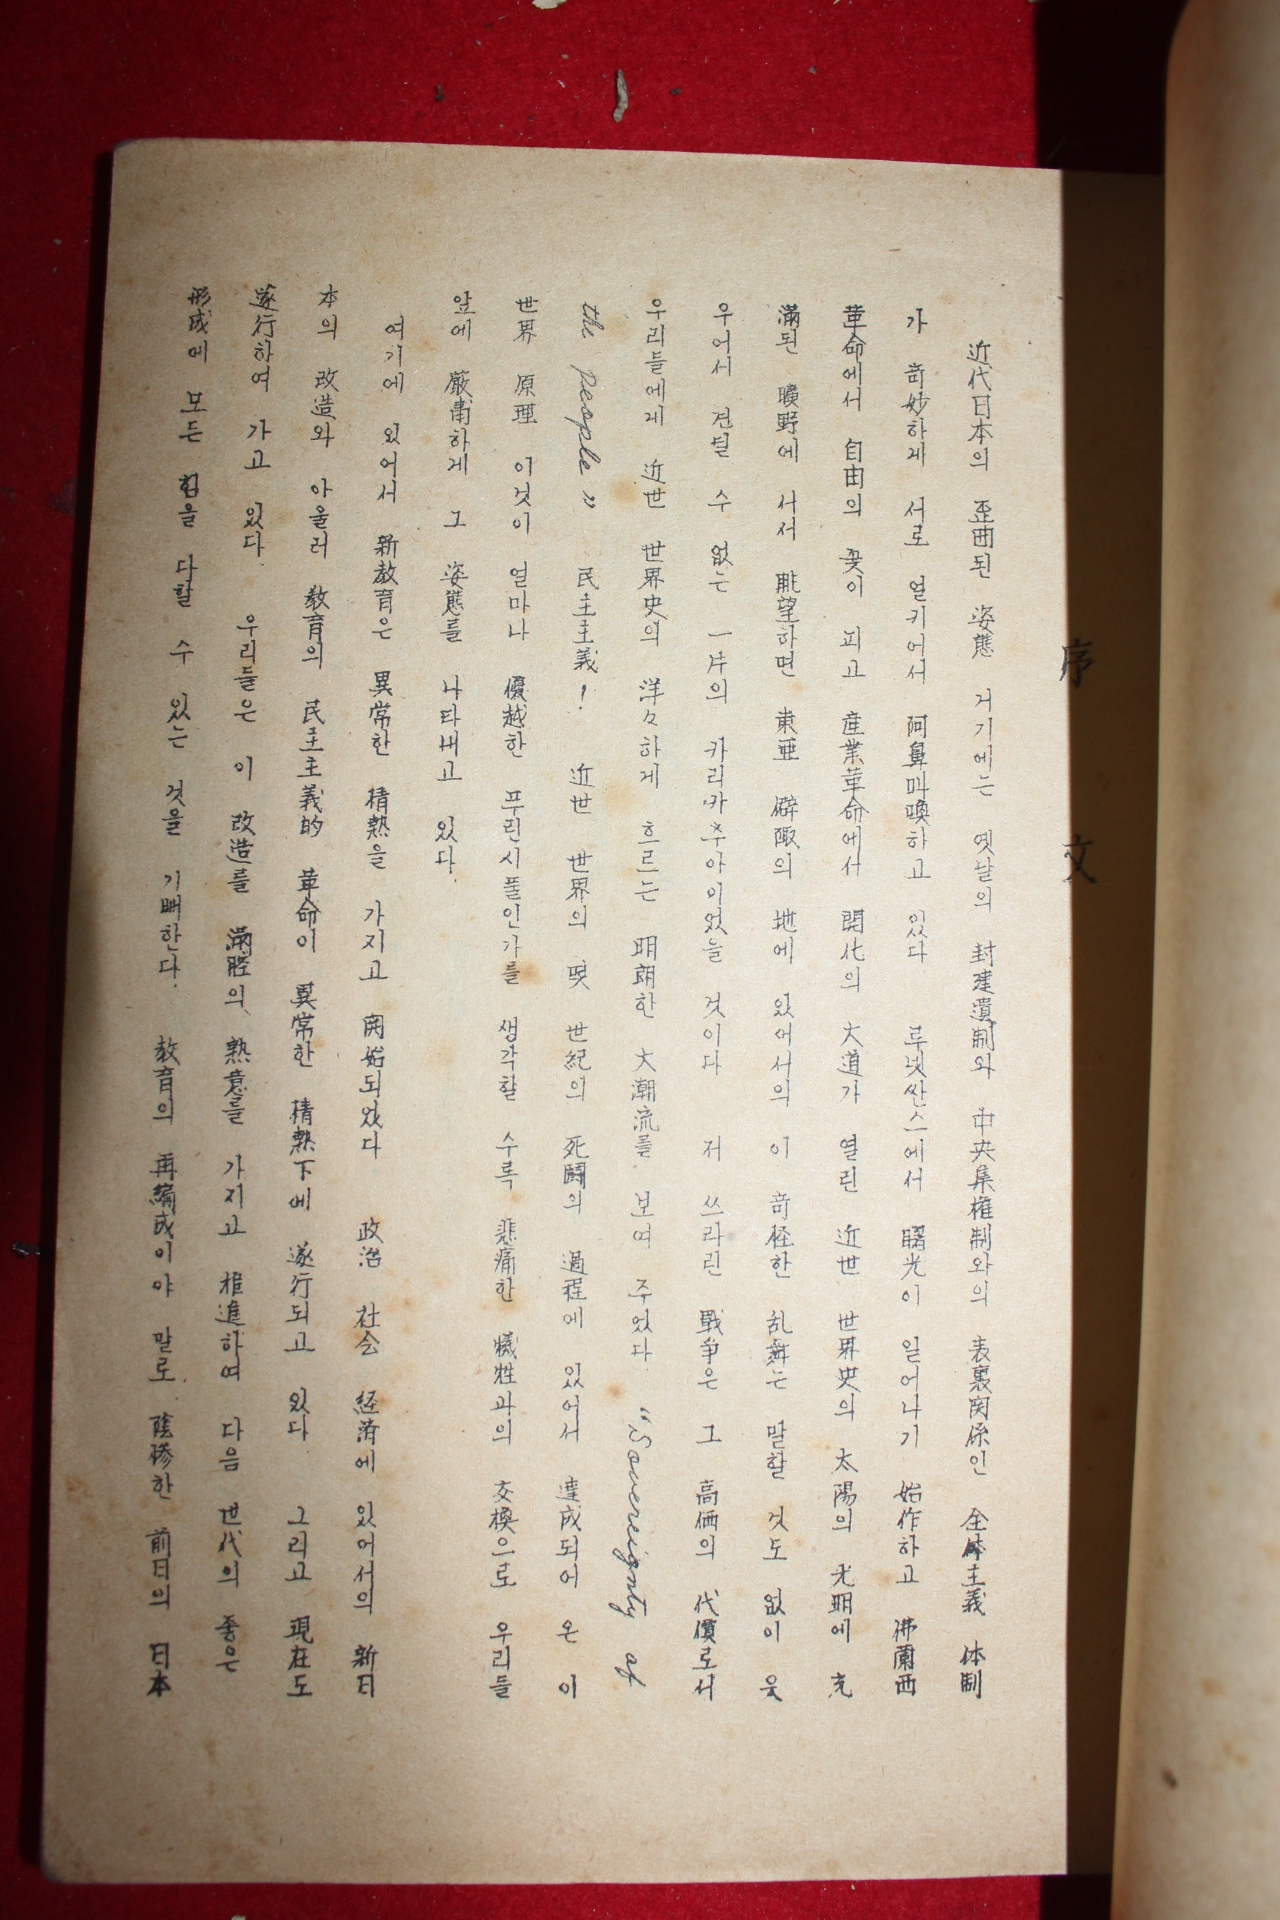 序文
近代日本의 歪曲된 姿態 거기에는 옛날의 封建遺制와 中央集権制와의 表裏関係인 全体主義 体制
가 奇妙하게 서로 얼키어서 阿鼻叫喚하고 있다 루넷싼스에서 曙光이 일어나기 始作하고 佛蘭西
革命에서 自由의 꽃이 피고 産業革命에서 開化의 大道가 열린 近世 世界史의 太陽의 光明에 充
滿된 曠野에 서서 眺望하면 東亜 僻陬의 地에 있어서의 이 奇怪한 乱舞는 말할 것도 없이 웃
우어서 견딜 수 없는 一片의 카리카추아이었을 것이다 저 쓰라린 戰爭은 그 高価의 代償로서
우리들에게 近世 世界史의 洋々하게 흐르는 明朗한 大潮流를 보여 주었다. "Sovereignty of
the people" 民主主義! 近世 世界의 몇 世紀의 死鬪의 過程에 있어서 達成되어 온 이
世界 原理 이것이 얼마나 優越한 푸린시플인가를 생각할 수록 悲痛한 犠牲과의 交換으로 우리들
앞에 厳肅하게 그 姿態를 나타내고 있다.
여기에 있어서 新教育은 異常한 情熱을 가지고 開始되었다 政治 社会 経済에 있어서의 新日
本의 改造와 아울러 教育의 民主主義的 革命이 異常한 情熱下에 遂行되고 있다 그리고 現在도
遂行하여 가고 있다. 우리들은 이 改造를 滿腔의 熱意를 가지고 推進하여 다음 世代의 좋은
形成에 모든 힘을 다할 수 있는 것을 기뻐한다. 教育의 再編成이야 말로 陰惨한 前日의 日本